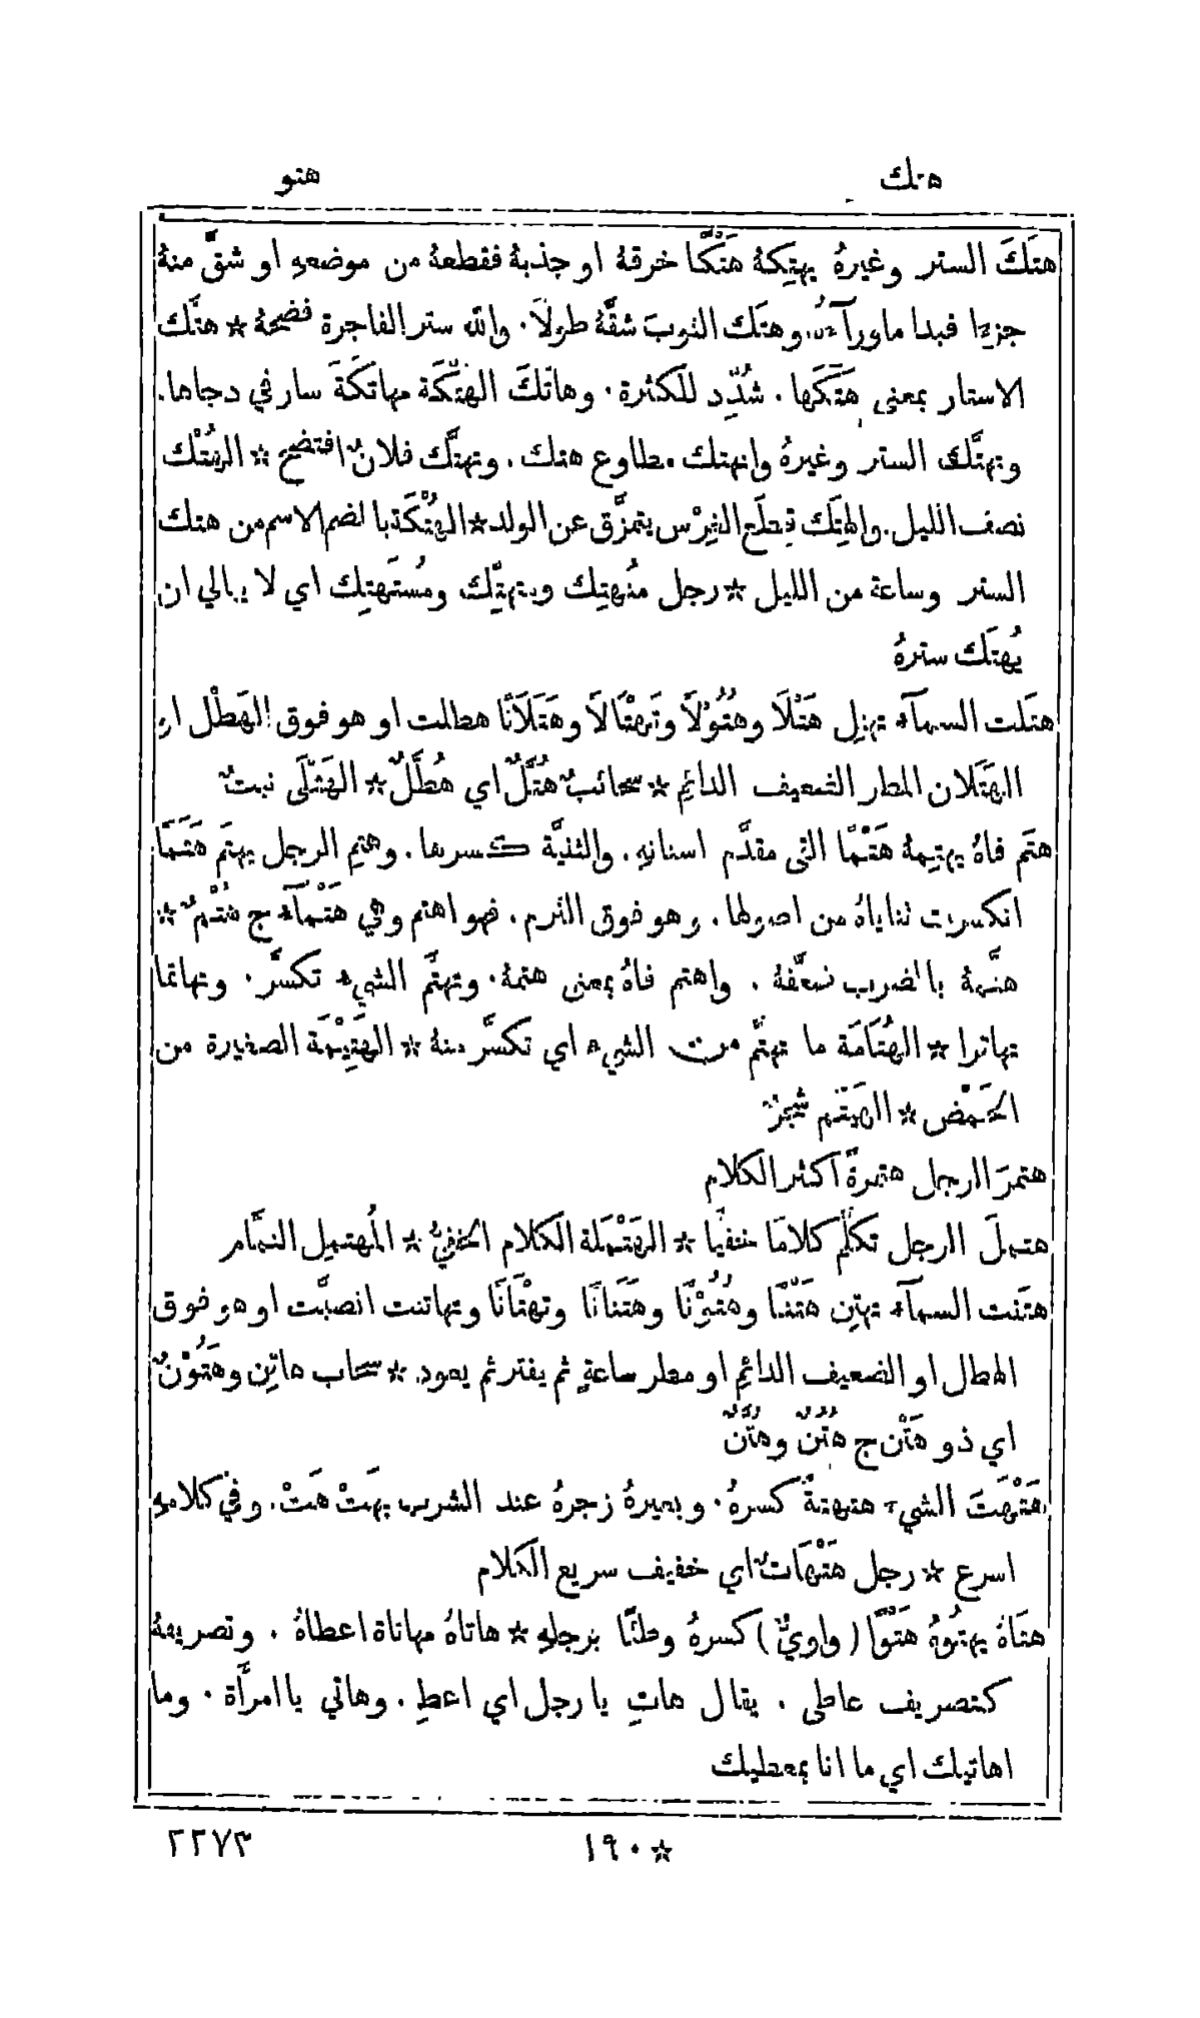 هتك
هتو
هتَكَ الستر وغيرهُ يهتِكهُ هَتْكًا خرقهُ او جذبهُ فقطعهُ من موضعهِ او شقَّ منهُ
جزءًا فبدا ما ورآءَهُ. وهتَك الثوبَ شقَّهُ طولًا. والله ستر الفاجرة فضحهُ ☆ هتَّك
الاستار بمعنى هَتَكَها. شُدِّد للكثرة. وهاتَكَ الهُتْكَة مهاتَكَةَ سار في دجاها.
وتهتَّك الستر وغيرهُ وانهتك مطاوع هتك. وتهتَّك فلانٌ افتضح ☆ الهُتْك
نصف الليل. والهِتَك قِطَع الغِرْس يتمزَّق عن الولد ☆ الهُتْكَة بالضم الاسم من هتك
الستر وساعة من الليل ☆ رجل مُنْهتِك ومتهتِّك ومُستَهتِك اي لا يبالي ان
يُهتَك سترهُ
هتَلت السمآء تهتِل هَتْلًا وهُتُوْلًا وتَهْتَالًا وهَتَلَانًا هطلت او هو فوق الهَطْل او
الهَتَلان المطر الضعيف الدائم ☆ سحائبُ هُتَّلٌ اي هُطَّلٌ ☆ الهَتْلَى نبتٌ
هتَم فاهُ يهتِمهُ هَتْمًا القى مقدَّم اسنانهِ. والثنيَّة كسرها. وهتِم الرجل يهتَم هَتَمًا
انكسرت ثناياهُ من اصولها. وهو فوق الثرم. فهو اهتم وهي هَتْمَآء ج هُتْمٌ ☆
هتَّمهُ بالضرب ضعَّفهُ. واهتم فاهُ بمعنى هتمهُ. وتهتَّم الشيء تكسَّر. وتهاتما
تهاترا ☆ الهُتَامَة ما تهتَّم من الشيء اي تكسَّر منهُ ☆ الهَتِيْمَة الصغيرة من
الحَمْض ☆ الهَيْتَم شجرٌ
هتمرَ الرجل هتمرةً اكثر الكلام
هتملَ الرجل تكلَّم كلامًا خفيًّا ☆ الهَتْمَلة الكلام الخفيُّ ☆ المُهتمِل النمَّام
هتَنت السمآء تهتِن هَتْنًا وهُتُوْنًا وهَتَنانًا وتهْتَانًا وتهاتنت انصبَّت او هو فوق
الهطل او الضعيف الدائم او مطر ساعةٍ ثم يفتر ثم يعود. ☆ سحاب هاتِن وهَتُوْنٌ
اي ذو هَتْن ج هُتُنٌ وهُتَّنٌ
هَتْهَتَ الشيء هتهتةً كسرهُ. وبعيرهُ زجرهُ عند الشرب بهَتْ هَتْ. وفي كلامهِ
اسرع ☆ رجل هَتْهَاتٌ اي خفيف سريع الكلام
هتَاهُ يهتُوهُ هَتْوًا (واويٌّ) كسرهُ وطئًا برجلهِ ☆ هاتاهُ مهاتاة اعطاهُ. وتصريفهُ
كتصريف عاطى. يقال هاتِ يا رجل اي اعطِ. وهاتي يا امرأَة. وما
اهاتيك اي ما انا بمعطيك
☆١٩٠
٢٢٧٣